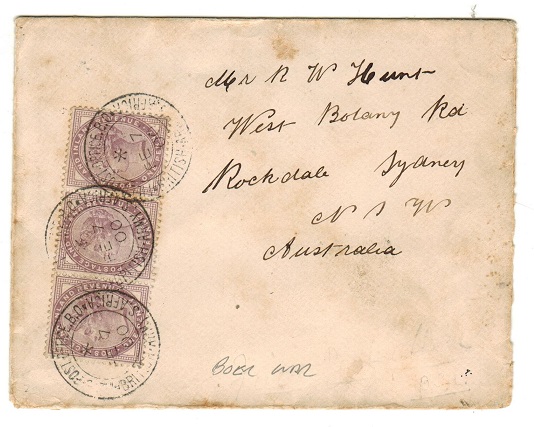 Mr R W Hunt
West Botany Rd
Rockdale Sydney
N S W
Australia
BOER WAR